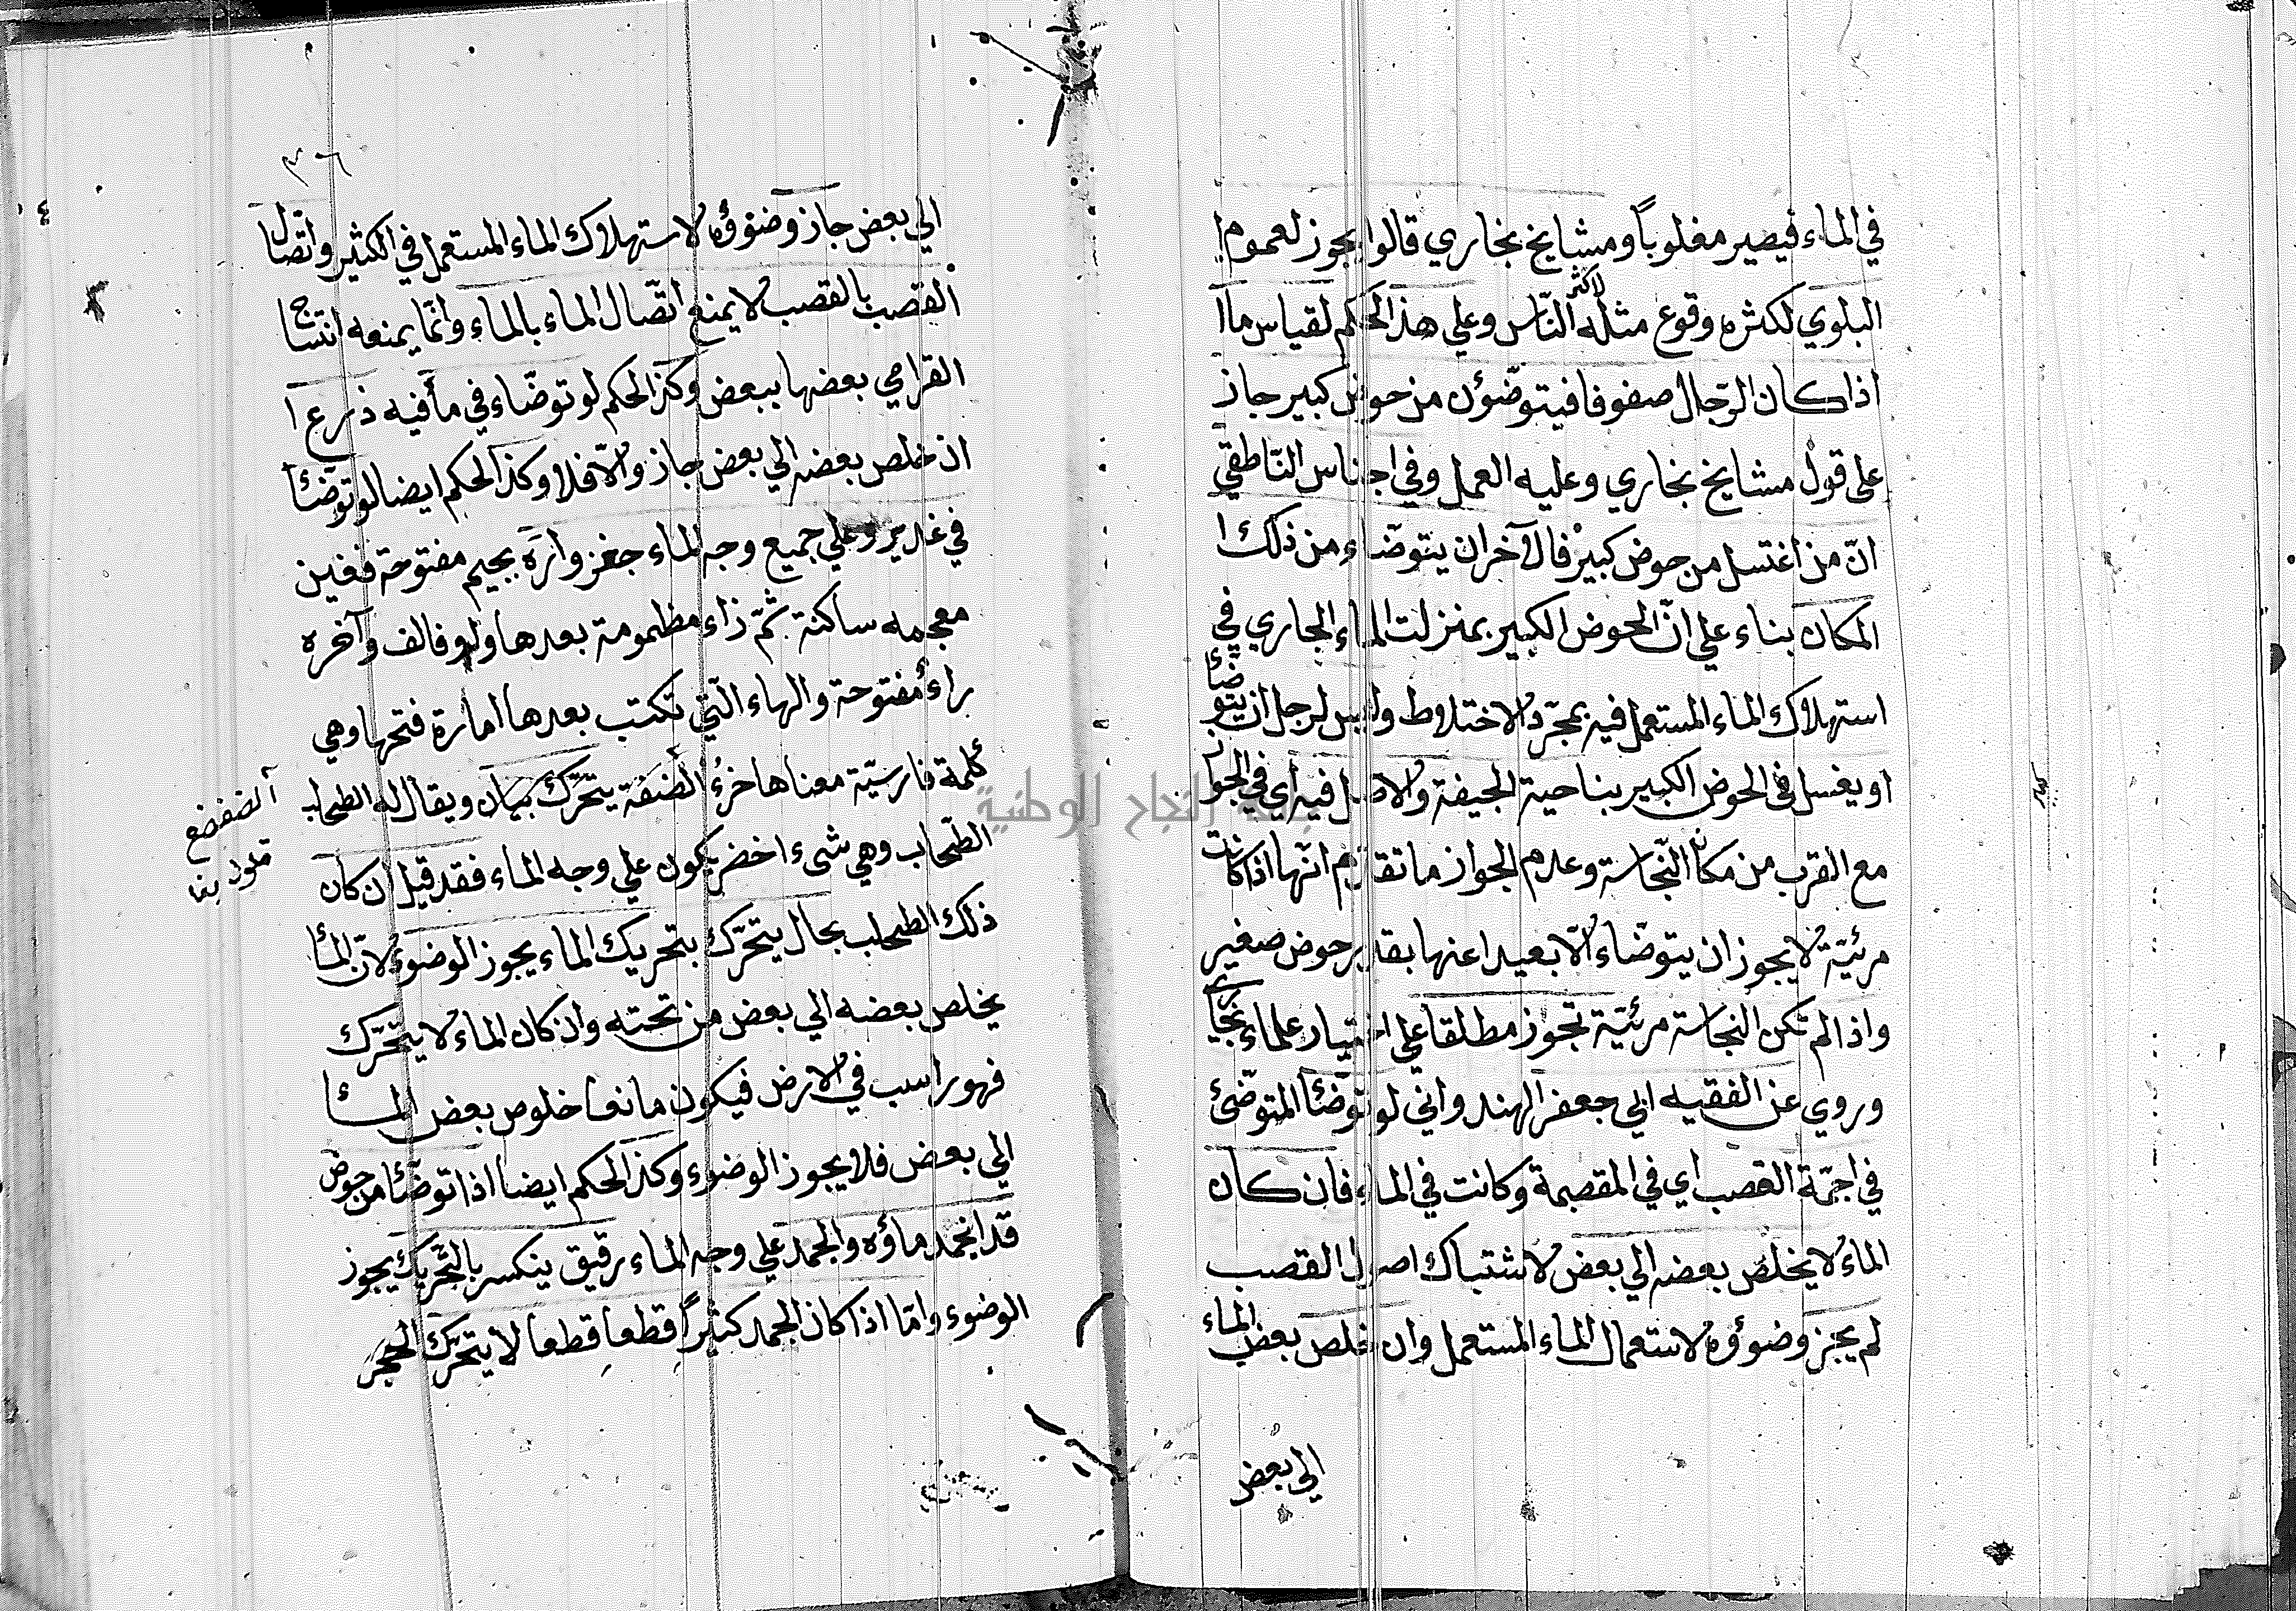 في الماء فيصير مغلوباً ومشايخ بخاري قالوا يجوز لعموم ا
البلوي لكثره وقوع مثله لاكثر النّاس وعلي هذ الحكم لقياس ما ا
اذا كان الرّجال صفوفا فيتوضّؤن من حوض كبير جاز
علي قول مشايخ بخاري وعليه العمل وفي اجناس النّاطقيّ
انّ من اغتسل من حوض كبير فالآخر ان يتوضّاء من ذلك ا
المكان بناء علي انّ الحوض الكبير بمنزلت الماء الجاري في
استهلاوك الماء المستعمل فيه بمجرّد الاختلاوط وليس لرجل ان يتوضّأ
او يغسل في الحوض الكبير بناحية الجيفة والاصل فيه اي في الجواز
مع القرب من مكان النّجاسة وعدم الجواز ما تقدّم انّها اذا كانت
مرئيّة لا يجوز ان يتوضّاء الّا بعيدا عنها بقدر حوض صغير
واذا لم تكن النجاسة مرئيّة تجوز مطلقا علي اختيار علماء بخاري
وروي عن الفقيه ابي جعفر الهندواني لو توضّأ المتوضّئ
في اجمّة القصب اي في المقصبة وكانت في الماء فان كان
الماء لا يخلص بعضه الي بعض لاشتباك اصول القصب
لم يجز وضوؤه لاستعمال الماء المستعمل وان خلص بعض الماء
الي بعض
٣٦
الي بعض جاز وضوؤه لاستهلاوك الماء المستعمل في الكثير واتّصال
القصب بالقصب لا يمنع اتّصال الماء بالماء وانّما يمنعه انتساج
القرامي بعضها ببعض وكذ الحكم لو توضّاء في ما فيه ذرع ا
ان خلص بعضه الي بعض جاز والّا فلا وكذ الحكم ايضا لو توضّأ
في غدير وعلي جميع وجه الماء جغزواره بجيم مفتوحة فغين
معجمه ساكنة ثمّ زاء مظمومة بعدها ولو فالف وآخره
راء مفتوحة والهاء الّتي تكتب بعدها امارة فتحها وهي
كلمة فارسيّة معناها خرء الضفة يتحرّك ويقال له الطحلب
الطّحاب وهي شيء اخضر يكون علي وجه الماء فقد قيل ان كان
ذلك الطحلب بحال يتحرّك بتحريك الماء يجوز الوضوء لانّ المأ
يخلص بعضه الي بعض من تحته وان كان الماء لا يتحرّك
فهو راسب في الارض فيكون مانعا خلوص بعض المأ
الي بعض فلا يجوز الوضوء وكذ الحكم ايضا اذا توضّأ من حوض
قد انجمد ماؤه والجمد علي وجه الماء رقيق ينكسر بالتّحريك يجوز
الوضوء وامّا اذا كان الجمد كثيراً قطعا قطعا لا يتحرّك الحجر
الضفضع
جامعة النجاح الوطنية